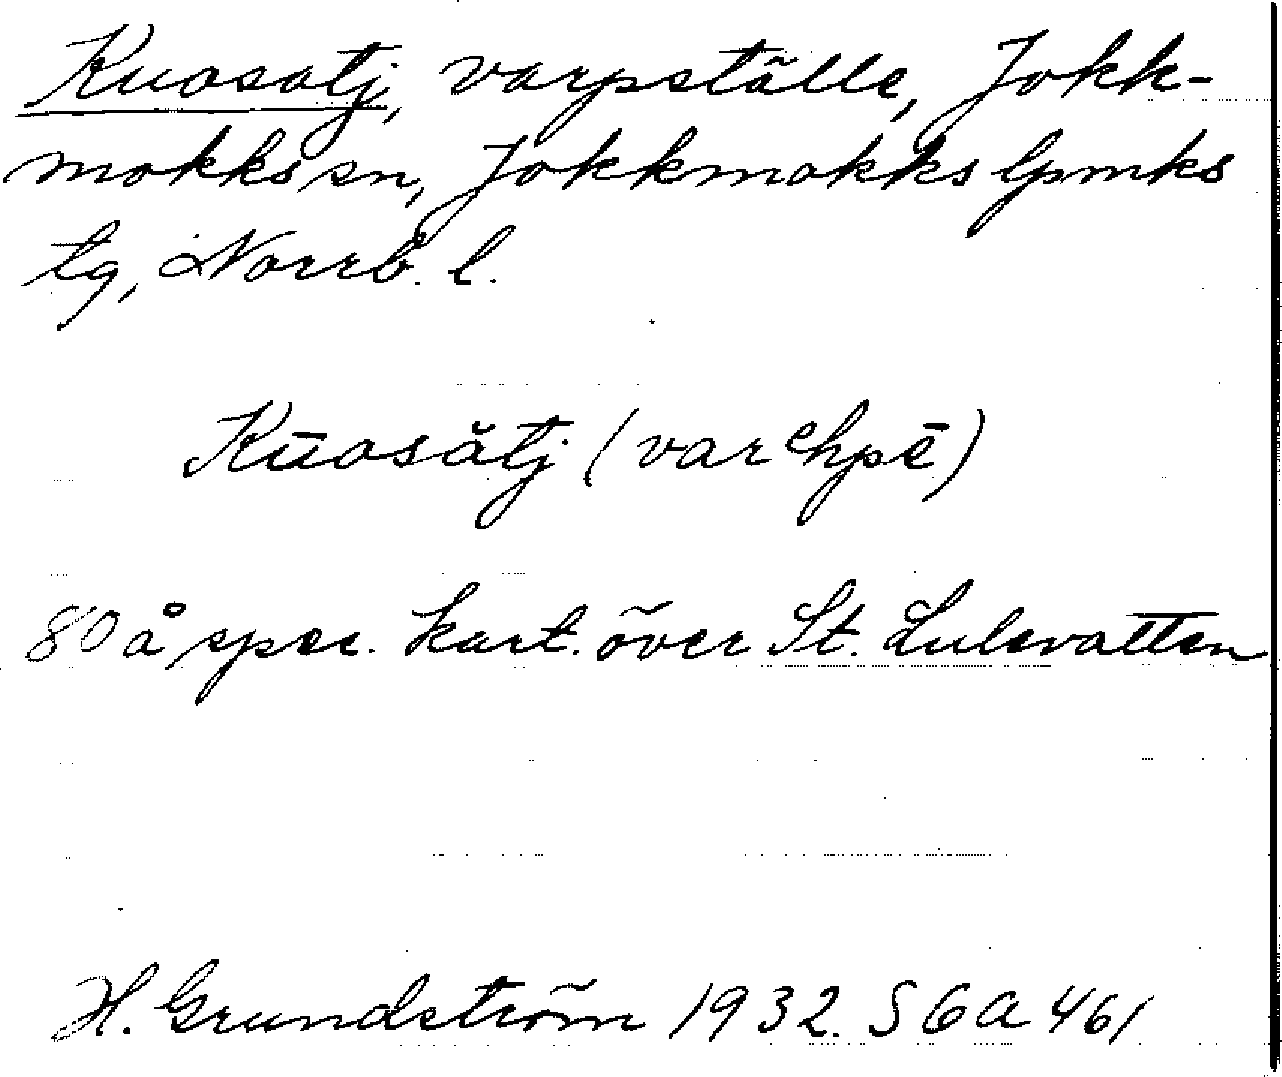 Kuosatj, varpställe, Jokk-
mokks sn, Jokkmokks lpmks
tg, Norrb. l.
Kūosătj (varᵉhpē)
80 å spec. kart. över St. Lulevatten
H. Grundström 1932. S 6 a 461